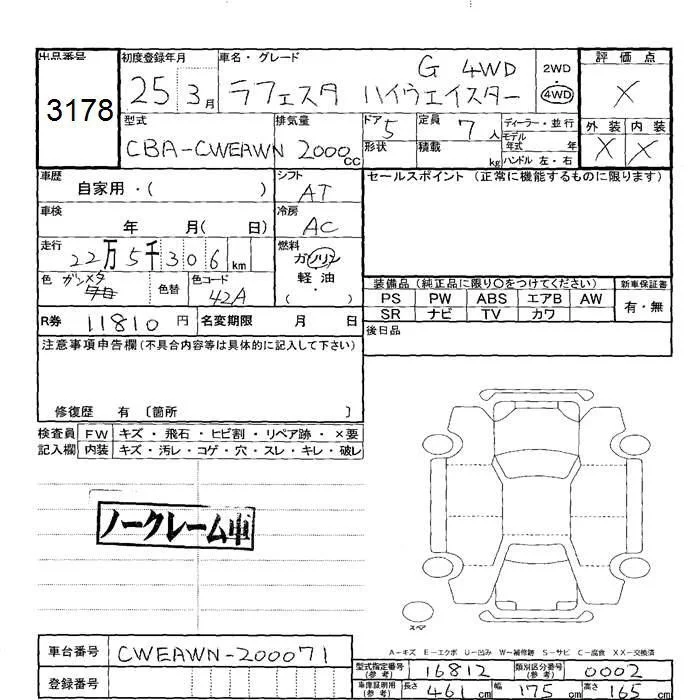 出品番号 初度登録年月 車名・グレード 評価点
3178 25 3月 ラフェスタ ハイウェイスター G 4WD 2WD・4WD X
型式 排気量 ドア 5 定員 7人 ディーラー・並行 外装 内装
CBA-CWEAWN 2000cc 形状 積載 kg モデル年式 年 X X
ハンドル 左・右
車歴 自家用・( ) シフト AT セールスポイント (正常に機能するものに限ります)
車検 年 月( 日) 冷房 AC
走行 22万5千306km 燃料 ガソリン・軽油・( )
色 ガンメタ 色替 色コード 42A 装備品 (純正品に限り〇をつけてください) 新車保証書
PS PW ABS エアB AW 有・無
R券 11810円 名変期限 月 日 SR ナビ TV カワ
後日品
注意事項申告欄(不具合内容等は具体的に記入して下さい)
修復歴 有 〔箇所 〕
検査員 FW キズ・飛石・ヒビ割・リペア跡・×要
記入欄 内装 キズ・汚レ・コゲ・穴・スレ・キレ・破レ
ノークレーム車
スペア
A-キズ E-エクボ U-凹み W-補修跡 S-サビ C-腐食 XX-交換済
車台番号 CWEAWN-200071 型式指定番号(参考) 16812 類別区分番号(参考) 0002
登録番号 車庫証明用(参考) 長さ 461cm 幅 175cm 高さ 165cm